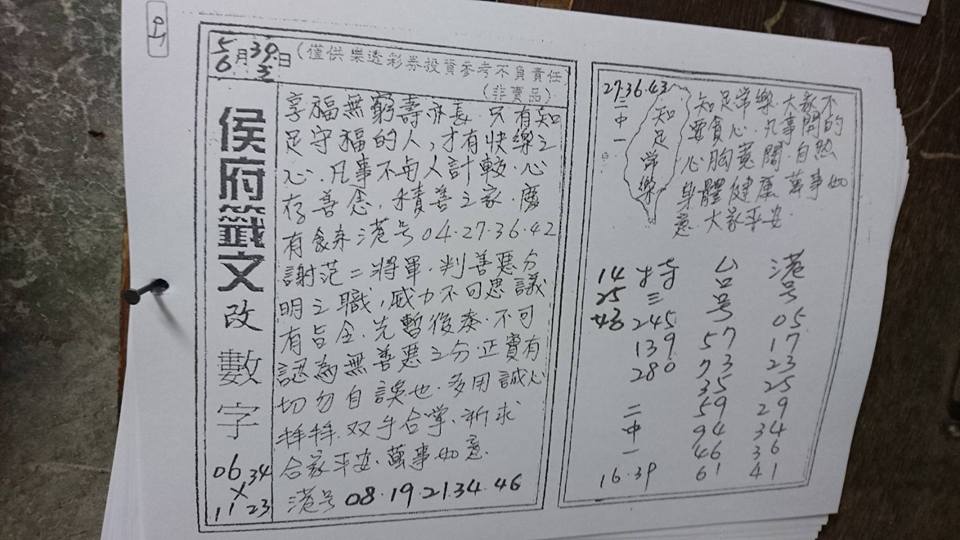 5/6月39.2日(僅供樂透彩券投資參考不負責任
(非賣品)
侯府籤文改數字
06 34
×
11 23
享福無窮壽亦長．只有知
足守福的人，才有快樂之
心．凡事不與人計較．心
存善念，積善之家．慶
有餘來港号04.27.36.42
謝范二將軍．判善惡分
明之職，威力不可思議
有旨全．先暫後奏．不可
認為無善惡之分．正實有
切勿自誤也．多用誠心
拜拜．双手合掌．祈求
合家平安．萬事如意．
港号08.19.21.34.46
27.36.43
二中一
知足常樂
知足常樂．大家不
要貪心．凡事開的
心胸寬闊．自然
身體健康 萬事如
意．大家平安．
港号
05
17
23
25
29
34
36
41
台号
57
73
35
59
94
46
61
特三
245
139
280
二中一
16.39
14
25
43